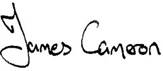 James Cameron